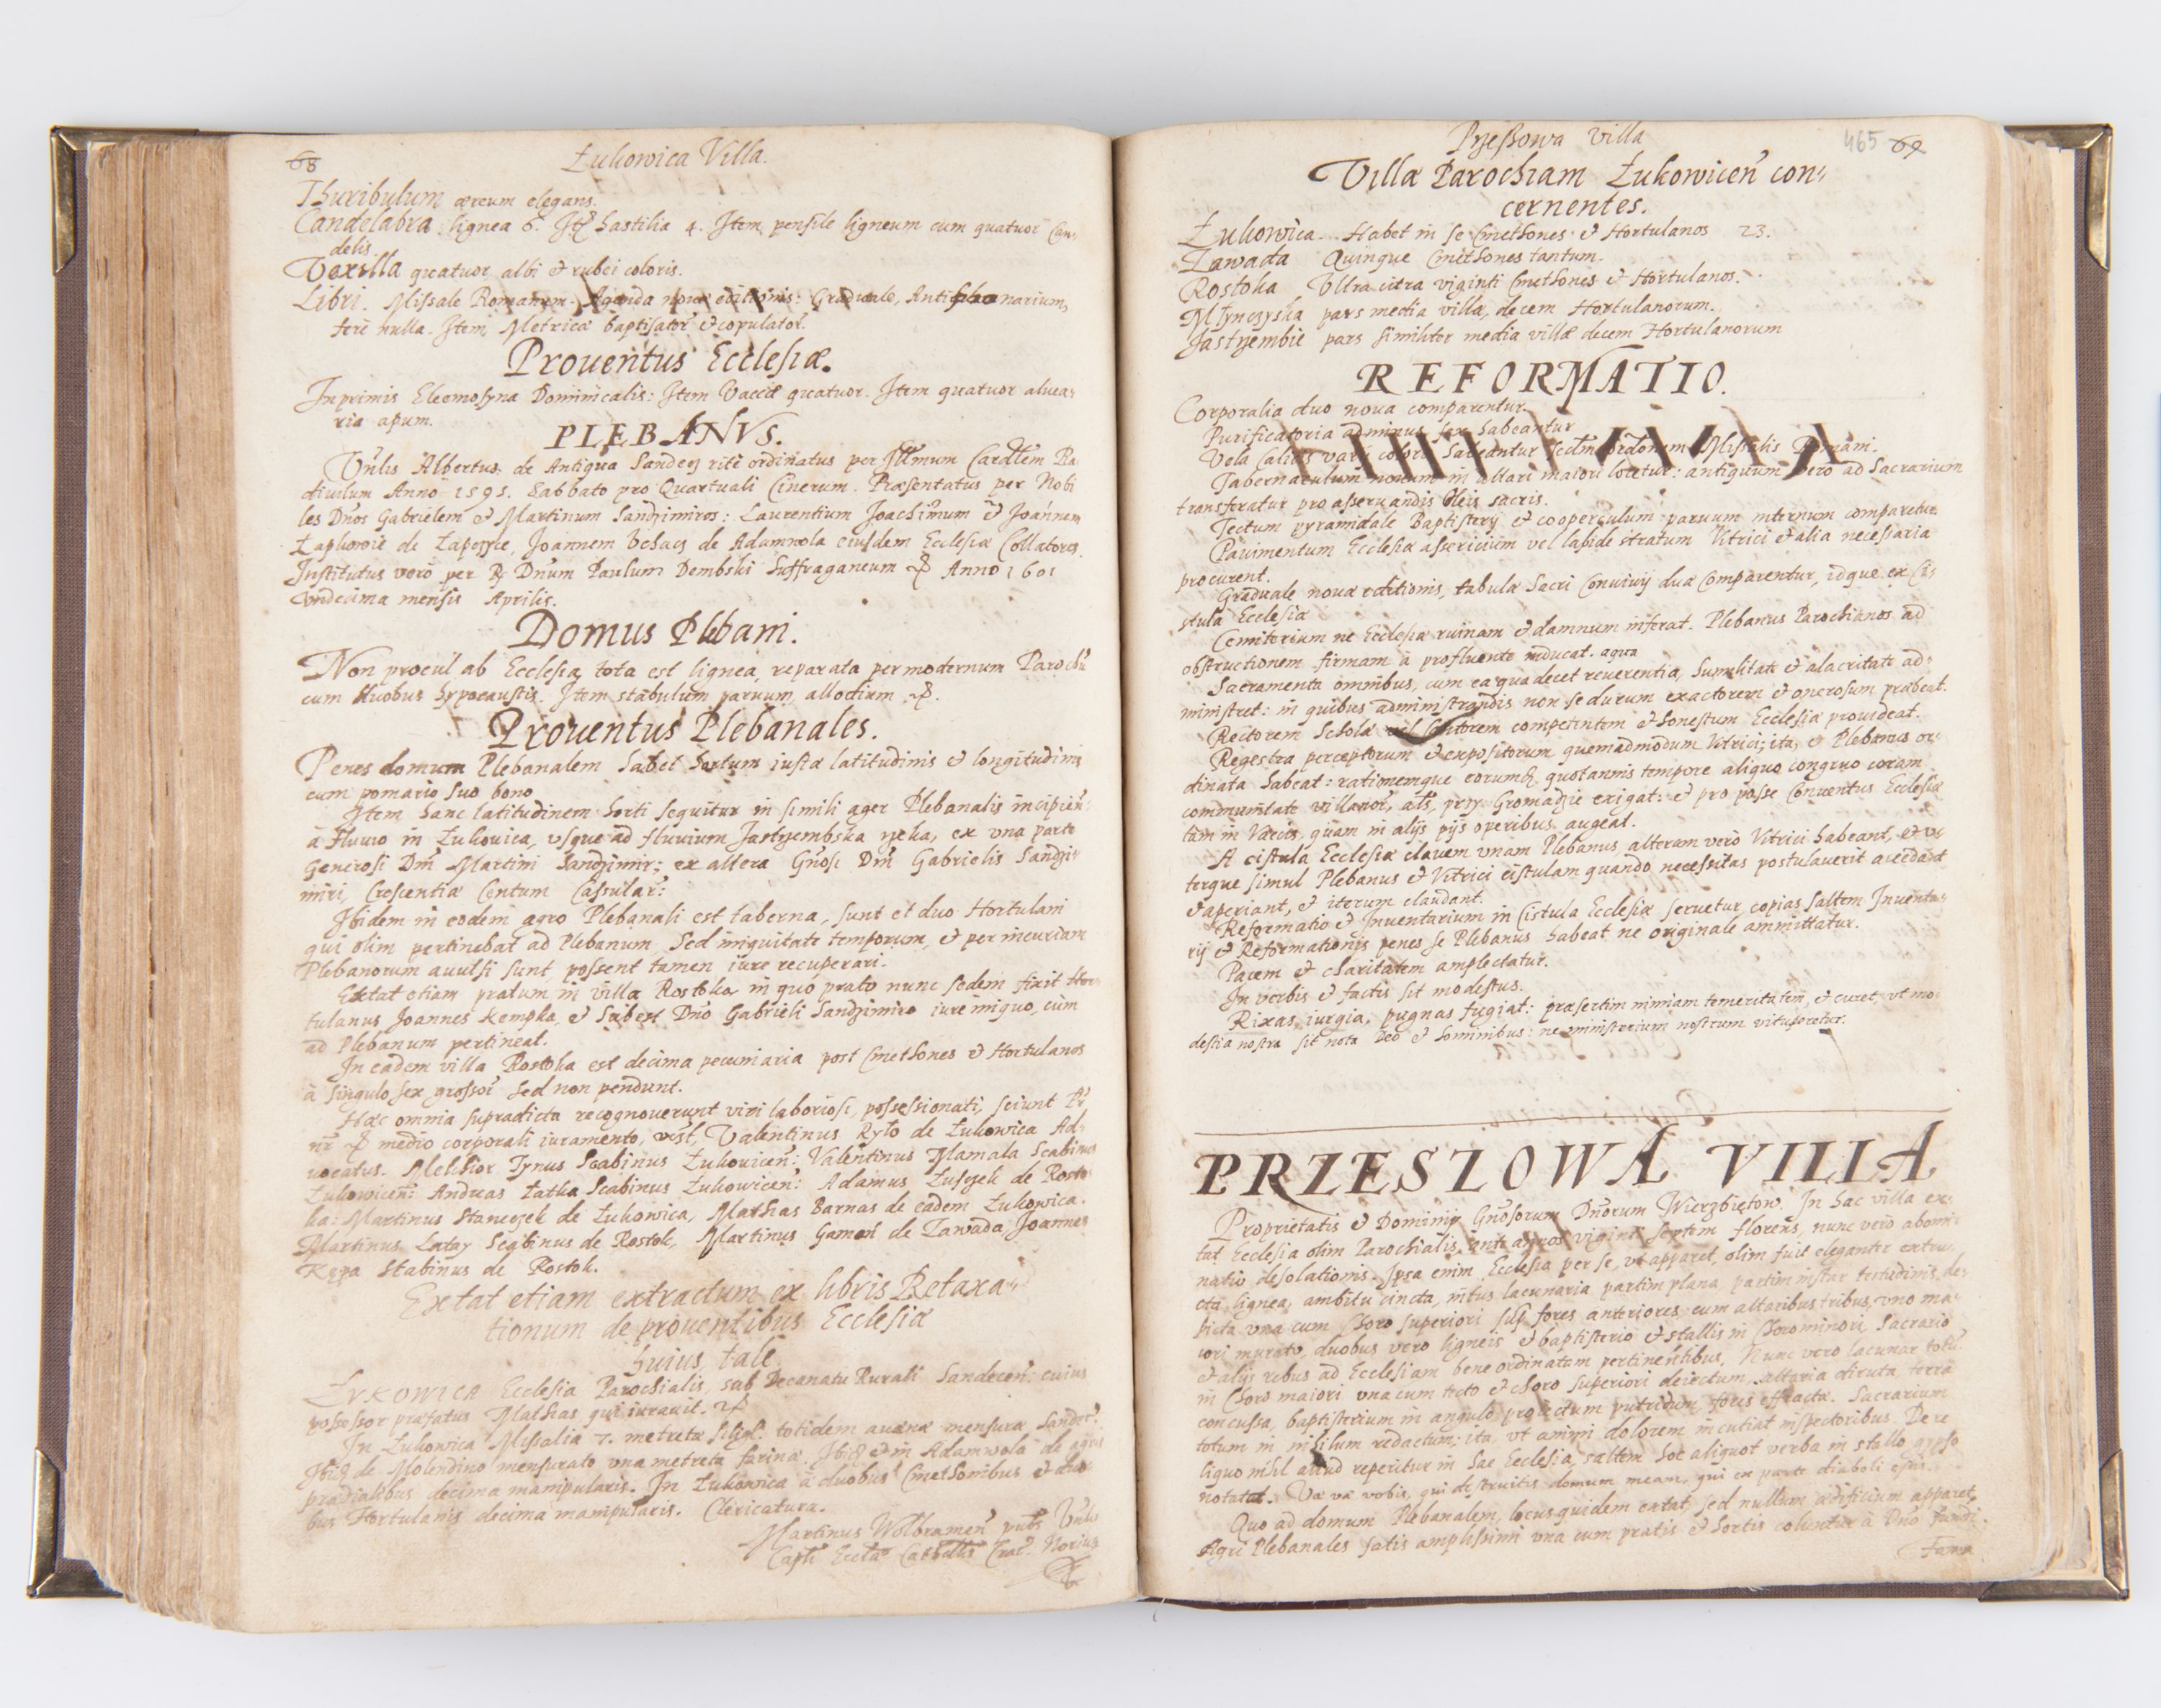 68
Łukowica Villa.
Thuribulum æreum elegans.
Candelabra lignea 6. Itē hastilia 4. Item pensile ligneum cum quatuor Can,
delis.
Vexilla quatuor albi & rubei coloris.
Libri. Missale Romanum. Agenda novæ editionis: Graduale, Antiphonarium,
ferè nulla. Item Metrica baptisator̃ & copulator̃.
Prouentus Ecclesiæ.
Inprimis Eleemosyna Dominicalis: Item Vaccæ quatuor. Item quatuor aluea,
ria apum.
PLEBANVS.
Vn̄lis Albertus de Antiqua Sandecz ritè ordinatus per Illmum Cardlem Ra
diuilum Anno 1595. Sabbato pro Quartuali Cinerum. Præsentatus per Nobi
les Dnos Gabrielem & Martinum Sandzimiros: Laurentium Joachimum & Joannem
Łapkowie de Łapczycze, Joannem de Adamwola eiusdem Ecclesiæ Collatores.
Institutus verò per R. Dnum Paulum Dembski Suffraganeum & Anno 1601
Vndecima mensis Aprilis.
Domus Plebani.
Non procul ab Ecclesia, tota est lignea, reparata per modernum Parochū
cum duobus hypocaustis. Item stabulum paruum, allodium &.
Prouentus Plebanales.
Penes domum Plebanalem habet hortum iustæ latitudinis & longitudinis
cum pomario suo bono
Item hanc latitudinem horti sequitur in simili ager Plebanalis incipień:
à Fluuio in Łukouica, vsque ad fluuium Jastrzembska rzeka, ex vna parte
Generosi Dni Martini Sandzimir; ex altera Gnosi Dni Gabrielis Sandzi
miri, Crescentia Centum Cassular̃:
Ibidem in eodem agro Plebanali est taberna, sunt et duo Hortulani
qui olim pertinebat ad Plebanum, Sed iniquitate temporum, & per incuriam
Plebanorum auulsi sunt possent tamen iure recuperari.
Extat etiam pratum in villa Rostoka in quo prato nunc sedem fixit Hor
tulanus Joannes Kempka, & subest Dno Gabrieli Sandzimiro iure iniquo, cùm
ad Plebanum pertineat.
In eadem villa Rostoka est decima pecuniaria post Cmethones & Hortulanos
à singulo sex grossor̃ sed non pendunt.
Hæc omnia supradicta recognouerunt viri laboriosi, possessionati, sciunt
& medio corporali iuramento, vust, Valentinus Ryło de Łukowica Ad,
uocatus. Melchior Tynus Scabinus Łukouiceń: Valentinus Mamala Scabinus
Łukowiceń: Andreas Łatka Scabinus Łukowiceń: Adamus Łusczek de Rosto
ka: Martinus Stanczek de Łukowica, Mathias Barnas de eadem Łukowica.
Martinus Lataẏ Scabinus de Rostok, Martinus Gamoń de Zawada Joannes
Kępa Scabinus de Rostok.
Extat etiam extractum ex libris Retaxa,
tionum de prouentibus Ecclesiæ
huius tale.
ŁVKOWICA Ecclesia Parochialis, sub Decanatu Rurali Sandeceń: cuius
possessor præfatus Mathias qui iurauit. &
In Łukowica Missalia 7. metretæ siligi. totidem auenæ mensuræ Sandec̃:
Ibid̃ de Molendino mensurato vna metreta farinæ. Ibid̃ & in Adamwola de agris
prædialibus decima manipularis. In Łukowica à duobus Cmethonibus & duo
bus Hortulanis decima manipularis. Clericatura.
Martinus Wolbrameń
Capli Eccłæ Cathdlis Crac. Notrius
Przeszowa Villa
465 69
Villæ Parochiam Łukowiceń con,
cernentes.
Łukowica. Habet in se Cmethones & Hortulanos 23.
Zawada Quinque Cmethones tantum.
Rostoka Vltra citra viginti Cmethones & Hortulanos.
Młynczyska pars media villæ, decem Hortulanorum.
Jastrzembie pars similiter media villæ decem Hortulanorum
REFORMATIO.
Corporalia duo noua comparentur.
Purificatoria adminus sex habeantur
Vela Calicis varij coloris habeantur secdm ordonem Missalis Romani.
Tabernaculum nouum in altari maiori locetur: antiquum vero ad Sacrarium
transferatur pro asseruandis Oleis sacris.
Tectum pyramidale Baptisterij & cooperculum paruum internum comparetur
Pauimentum Ecclesiæ assericium vel lapide stratum Vitrici & alia necessaria
procurent.
Graduale nouæ editionis, tabulæ Sacri Conuiuij duæ Comparentur, idque ex Ci,
stula Ecclesiæ
Cemiterium ne Ecclesiæ ruinam & damnum inferat. Plebanus Parochianos ad
obstructionem firmam à profluente inducat. aqua
Sacramenta omnibus, cum ea qua decet reuerentia, humilitate & alacritate ad,
ministret: in quibus administrandis non se durum exactorem & onerosum præbeat.
Rectorem Scholæ vel Cantorem competentem & honestum Ecclesiæ prouideat.
Regestra perceptorum & expositorum quemadmodum Vitrici; ita, & Plebanus or,
dinata habeat: rationemque eorumq̃ quotannis tempore aliquo congruo coram
communitate villanor̃, als, przy Gromadzie exigat: & pro posse Conuentus Ecclesiæ
tam in Vaccis, quam in alijs pijs operibus augeat.
A cistula Ecclesiæ clauem vnam Plebanus alteram verò Vitrici habeant, & v
terque simul Plebanus & Vitrici cistulam quando necessitas postulauerit accedant
& aperiant, & iterum claudant.
Reformatio & Inuentarium in Cistula Ecclesiæ seruetur copias saltem Inuenta,
rij & Reformationis penes se Plebanus habeat ne originale ammittatur.
Pacem & charitatem amplectatur.
In verbis & factis sit modestus.
Rixas, iurgia, pugnas fugiat: præsertim nimiam temeritatem, & curet, vt mo,
destia nostra sit nota Deo & hominibus: ne ministerium nostrum vituperetur.
PRZESZOWA VILLA
Proprietatis & Dominij Gnosorum Dnorum Wierzbiętow. In hac villa ex,
tat Ecclesia olim Parochialis, ante annos viginti septem florens, nunc verò abomi
natio desolationis. Ipsa enim Ecclesia per se, vt apparet, olim fuit eleganter extru,
cta, lignea, ambitu cincta, intus lacunaria partim plana, partim instar testudinis de,
picta vna cum Choro superiori sup fores anteriores: cum altaribus tribus, vno ma,
iori murato, duobus vero ligneis & baptisterio & stallis in Choro minori, Sacrario
& alijs rebus ad Ecclesiam bene ordinatam pertinentibus, Nunc vero lacunar totū
in Choro maiori vna cum tecto & choro superiori deiectum, altaria diruta, terra
concussa, baptisterium in angulo proiectum putridum, fores effractæ. Sacrarium
totum in nihilum redactum; ita, vt animi dolorem incutiat inspectoribus. De re
liquo nihil aliud reperitur in hac Ecclesia, saltem hoc aliquot verba in stallo gypso
notata. Væ væ vobis, qui destruitis domum meam, qui ex parte diaboli estis.
Quo ad domum Plebanalem, locus quidem extat, sed nullum ædificium apparet,
Agri Plebanales satis amplissimi vna cum pratis & hortis coluntur à Dno fundi.
Fama